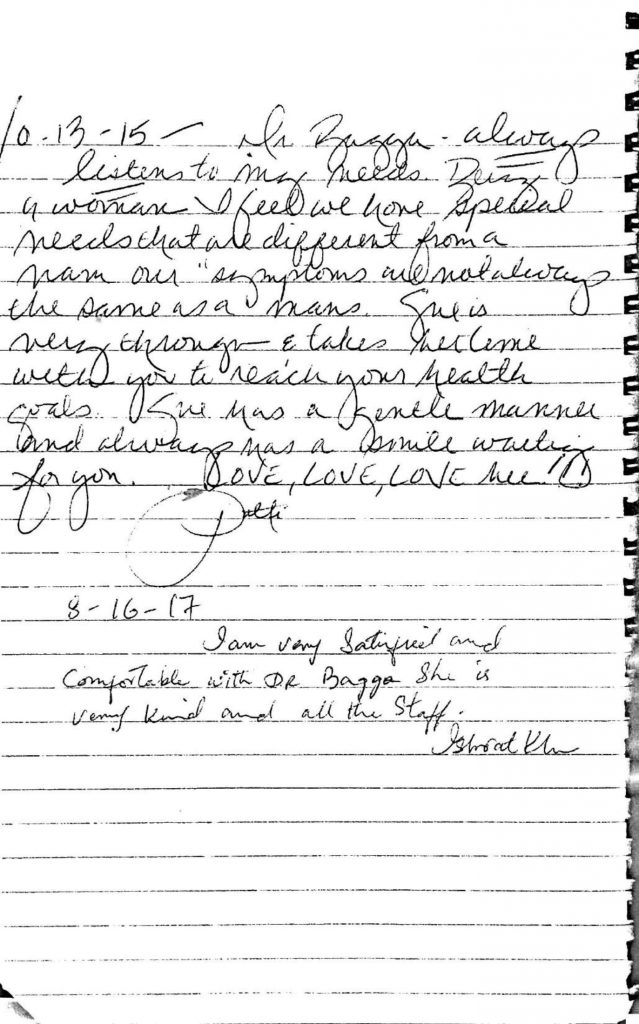 10-13-15 — Dr Bagga - always
listens to my needs. Being
a woman I feel we have special
needs that are different from a
mam our "symptoms are not always
the same as a mans. She is
very through & takes her time
with you to reach your health
goals. She has a gentle manner
and always has a smile waiting
for you. LOVE, LOVE, LOVE her!!
Patti
8-16-17
I am very Satisfied and
Comfortable with DR Bagga She is
very Kind and all the Staff.